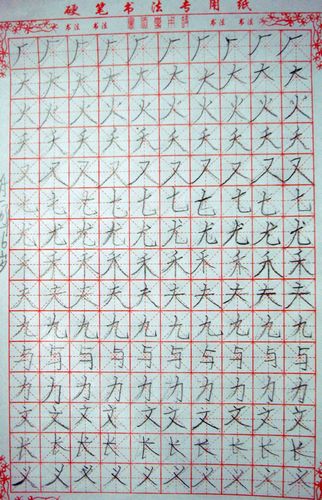 硬笔书法专用纸
书法 书法 书法 书法
厂厂厂厂厂厂厂厂厂厂
大大大大大大大大大大
火火火火火火火火火火
夭夭夭夭夭夭夭夭夭夭
又又又又又又又又又又
七七七七七七七七七七
尤尤尤尤尤尤尤尤尤尤
禾禾禾禾禾禾禾禾禾禾
夫夫夫夫夫夫夫夫夫夫
九九九九九九九九九九
与与与与与与与与与与
力力力力力力力力力力
文文文文文文文文文文
长长长长长长长长长长
义义义义义义义义义义
6岁